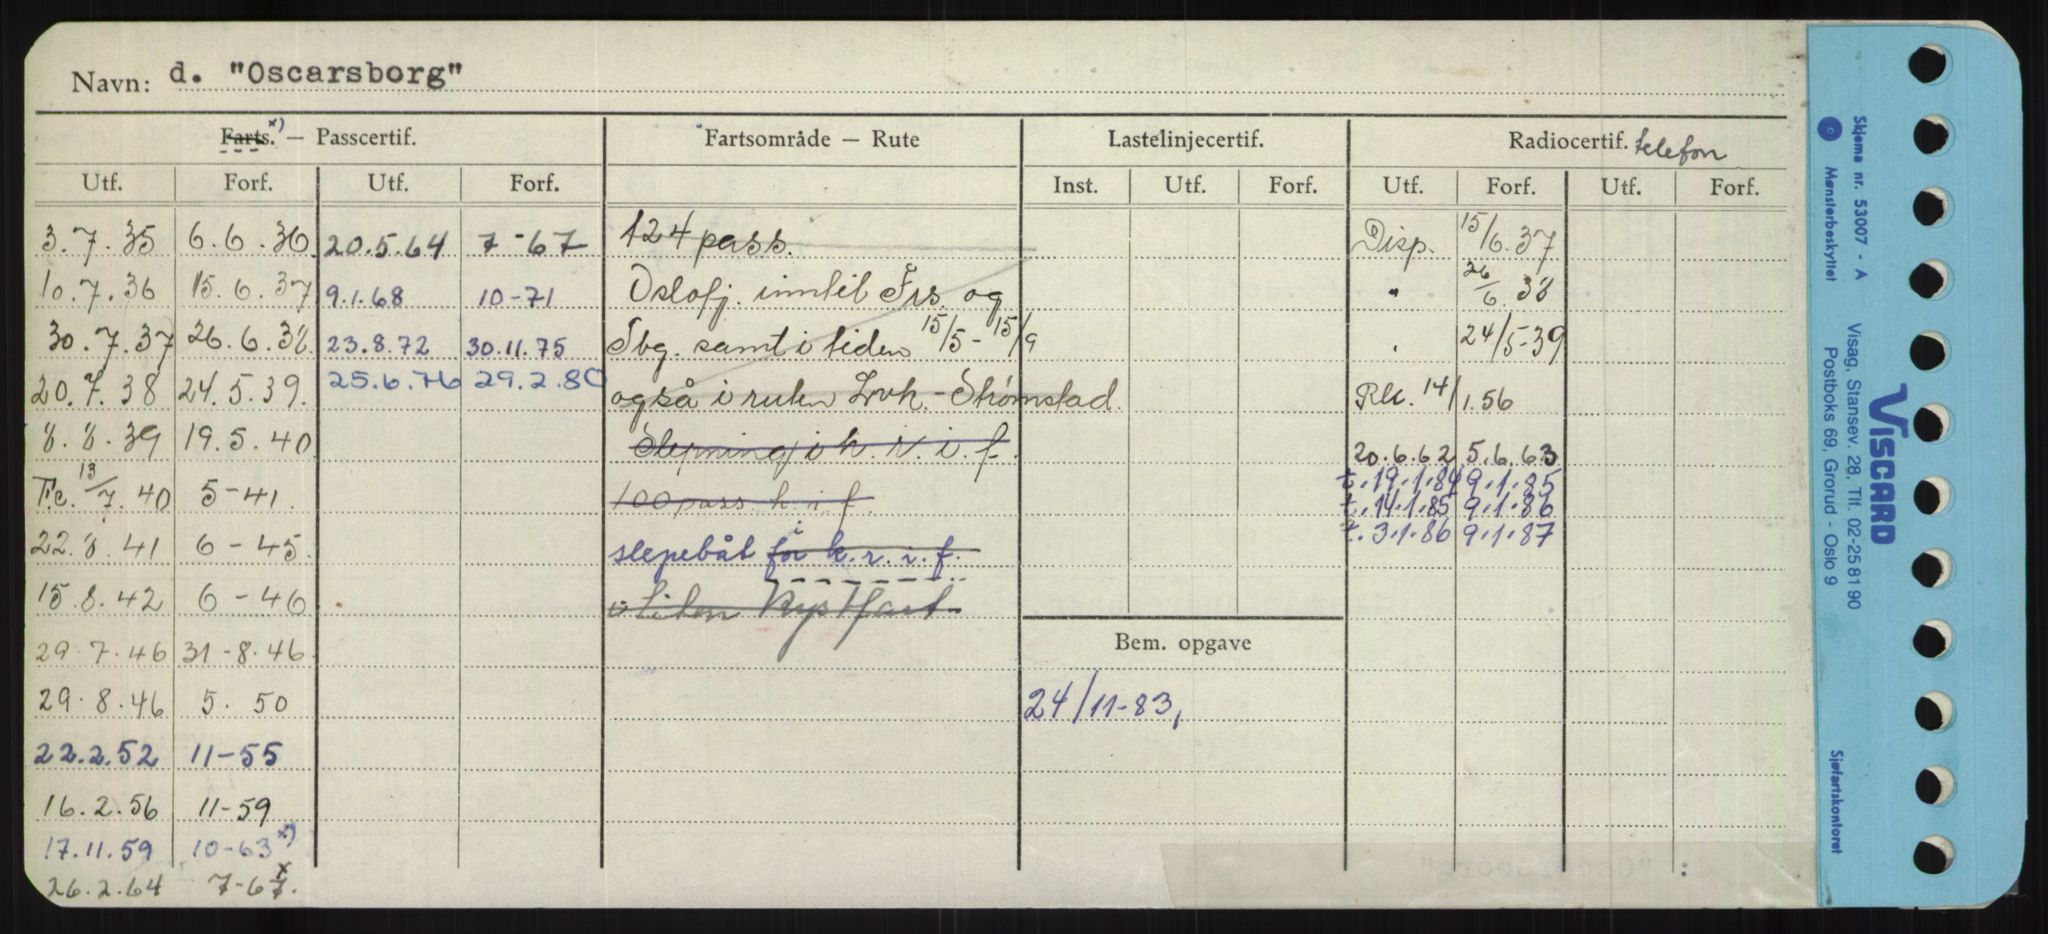 Navn: d. "Oscarsborg"
Farts. x) — Passcertif. Fartsområde — Rute Lastelinjecertif. Radiocertif. telefon
Utf. Forf. Utf. Forf. Inst. Utf. Forf. Utf. Forf. Utf. Forf.
3.7.35 6.6.36 20.5.64 7-67 124 pass. Disp. 15/6.37
10.7.36 15.6.37 9.1.68 10-71 Oslofj. inntil Frs. og " 26/6.38
30.7.37 26.6.38 23.8.72 30.11.75 Tbg. samt i tiden 15/5-15/9 " 24/5-39
20.7.38 24.5.39. 25.6.76 29.2.80 også i ruten Lvk.-Strømstad. Rk. 14/1.56
8.8.39 19.5.40 Slepning i k.r.i.f. 20.6.62 5.6.63
t. 19.1.84 9.1.85
F.c. 13/7.40 5-41. 100 pass k.i.f. t. 14.1.85 9.1.86
t. 3.1.86 9.1.87
22.8.41 6-45. slepebåt for i k.r.i.f.
15.8.42 6-46 i liten Kystfart
29.7.46 31-8.46 Bem. opgave
29.8.46 5.50 24/11-83,
22.2.52 11-55
16.2.56 11-59
17.11.59 10-63 x)
26.2.64 7-67. x
Skjema nr. 53007 - A
Mønsterbeskyttet
VISCARD
Visag, Stansev. 28, Tlf. 02-25 81 90
Postboks 69, Grorud - Oslo 9
Sjøfartskontoret